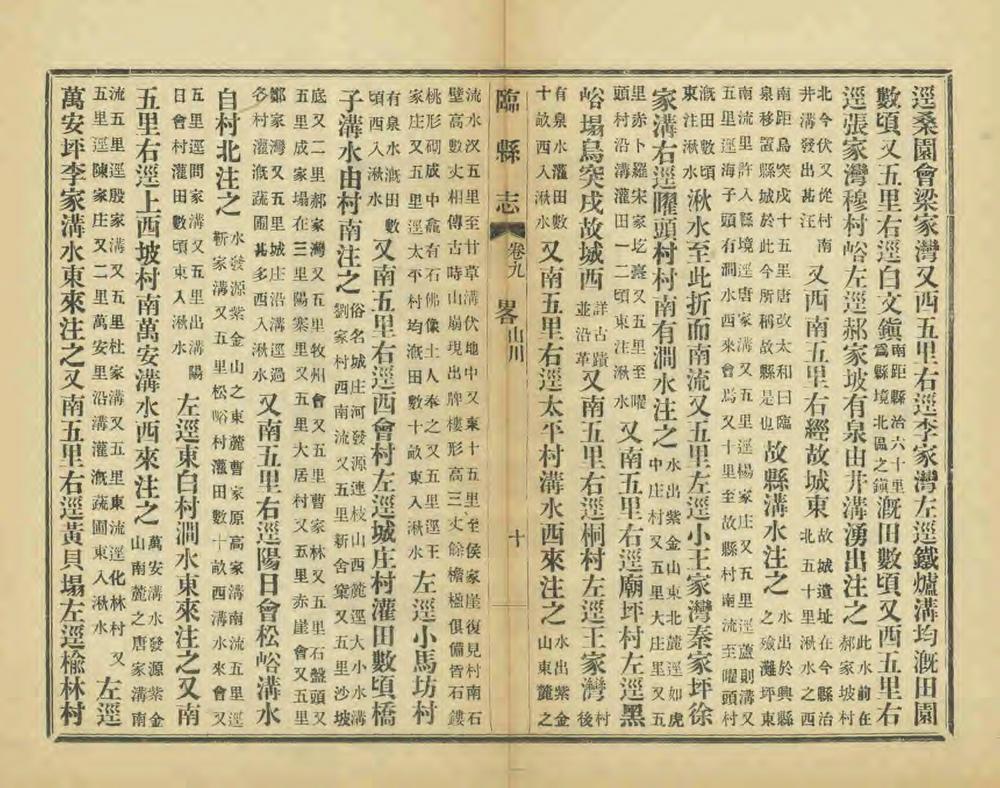 逕桑園會梁家灣又西五里右逕李家灣左逕鐵爐溝均漑田園
數頃又五里右逕白文鎮南距縣治六十里為縣境北區之鎮漑田數頃又西五里右
逕張家灣穆村峪左逕郝家坡有泉由井溝湧出注之此水前在郝家坡村
北今伏又從村南井溝發出甚汪又西南五里右經故城東故城遺址在今縣治北五十里湫水之西
南距烏突戍十五里唐改太和曰臨泉移置縣城於此今所稱故縣是也故縣溝水注之水出於興縣之殮灘坪東
南流里許入縣境逕唐家溝又五里逕楊家庄又五里逕蘆則溝又五里逕海子頭有澗水西來會焉又十里至故縣村南流至曜頭村
漑田數頃東注湫水湫水至此折而南流又五里左逕小王家灣秦家坪徐
家溝右逕曜頭村村南有澗水注之水出紫金山東北麓逕如虎中庄村又五里大庄里又五
里赤卜羅宋家圪臺又五里至曜頭村沿溝灌田一二頃東注湫水又南五里右逕廟坪村左逕黑
峪塌烏突戍故城西詳古蹟並沿革又南五里右逕桐村左逕王家灣村後
有泉水灌田數十畝西入湫水又南五里右逕太平村溝水西來注之水出紫金山東麓之
臨縣志 卷九 山川畧 十
流水汊五里至甘草溝伏地中又東十五里至侯家崖復見村南石壁高數丈相傳古時山崩現出牌樓形高三丈餘檐楹俱備皆石鏤
桃形砌成中龕有石佛像土人奉之又五里逕王家庄又五里逕太平村均漑田數十畝東入湫水左逕小馬坊村
有泉水漑田數頃西入湫水又南五里右逕西會村左逕城庄村灌田數頃橋
子溝水由村南注之俗名城庄河發源連枝山西麓逕大小水溝劉家村西南流又五里新舍窠又五里沙坡
底又二里郝家灣又五里牧州會又五里曹家林又五里石盤頭又五里成家塲在三里陽寨里又五里大居村又五里赤崖會又五里
鄭家灣又五里城庄沿溝逕過各村灌漑蔬圃甚多西入湫水又南五里右逕陽日會松峪溝水
自村北注之水發源紫金山之東麓曹家原高家溝南流五里逕靳家溝又五里松峪村灌田數十畝西溝水來會又
五里逕閻家溝又五里出溝陽日會村灌田數頃東入湫水左逕東白村澗水東來注之又南
五里右逕上西坡村南萬安溝水西來注之萬安溝水發源紫金山南麓之唐家溝南
流五里逕殷家溝又五里杜家溝又五里東流逕化林村又五里逕陳家庄又二里萬安里沿溝灌漑蔬圃東入湫水左逕
萬安坪李家溝水東來注之又南五里右逕黃貝塌左逕楡林村